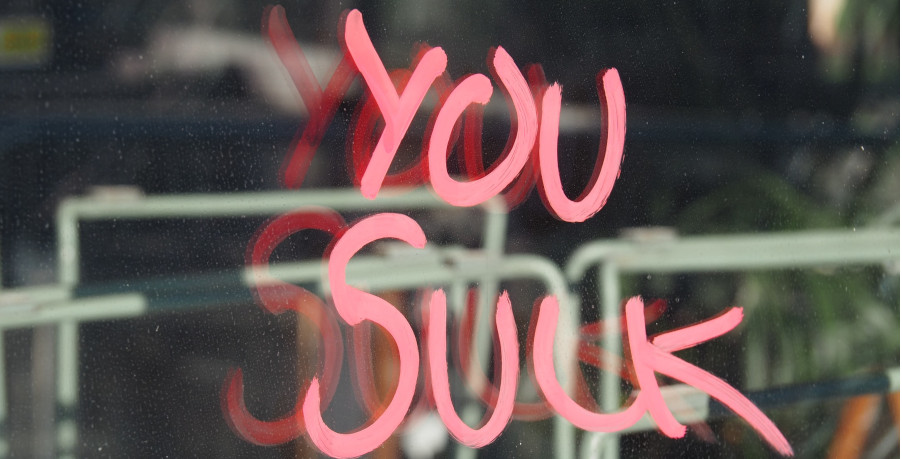 YOU
SUCK